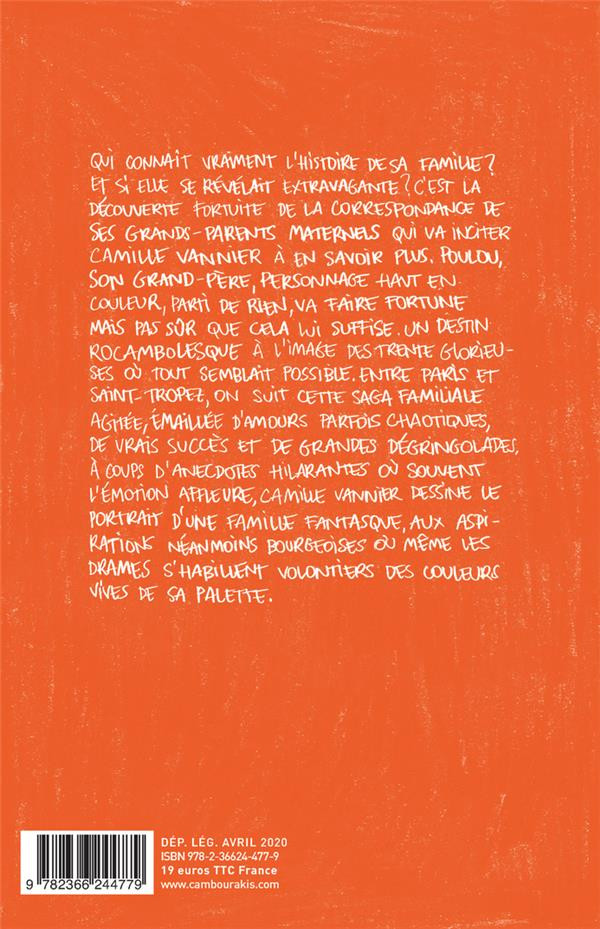 QUI CONNAÎT VRAIMENT L'HISTOIRE DE SA FAMILLE?
ET SI ELLE SE RÉVÉLAIT EXTRAVAGANTE? C'EST LA
DÉCOUVERTE FORTUITE DE LA CORRESPONDANCE DE
SES GRANDS-PARENTS MATERNELS QUI VA INCITER
CAMILLE VANNIER À EN SAVOIR PLUS. POULOU,
SON GRAND-PÈRE, PERSONNAGE HAUT EN
COULEUR, PARTI DE RIEN, VA FAIRE FORTUNE
MAIS PAS SÛR QUE CELA LUI SUFFISE. UN DESTIN
ROCAMBOLESQUE À L'IMAGE DES TRENTE GLORIEU-
SES OÙ TOUT SEMBLAIT POSSIBLE. ENTRE PARIS ET
SAINT-TROPEZ, ON SUIT CETTE SAGA FAMILIALE
AGITÉE, ÉMAILLÉE D'AMOURS PARFOIS CHAOTIQUES,
DE VRAIS SUCCÈS ET DE GRANDES DÉGRINGOLADES.
À COUPS D'ANECDOTES HILARANTES OÙ SOUVENT
L'ÉMOTION AFFLEURE, CAMILLE VANNIER DESSINE LE
PORTRAIT D'UNE FAMILLE FANTASQUE, AUX ASPI-
RATIONS NÉANMOINS BOURGEOISES OÙ MÊME LES
DRAMES S'HABILLENT VOLONTIERS DES COULEURS
VIVES DE SA PALETTE.
DÉP. LÉG. AVRIL 2020
ISBN 978-2-36624-477-9
19 euros TTC France
www.cambourakis.com
9 782366 244779